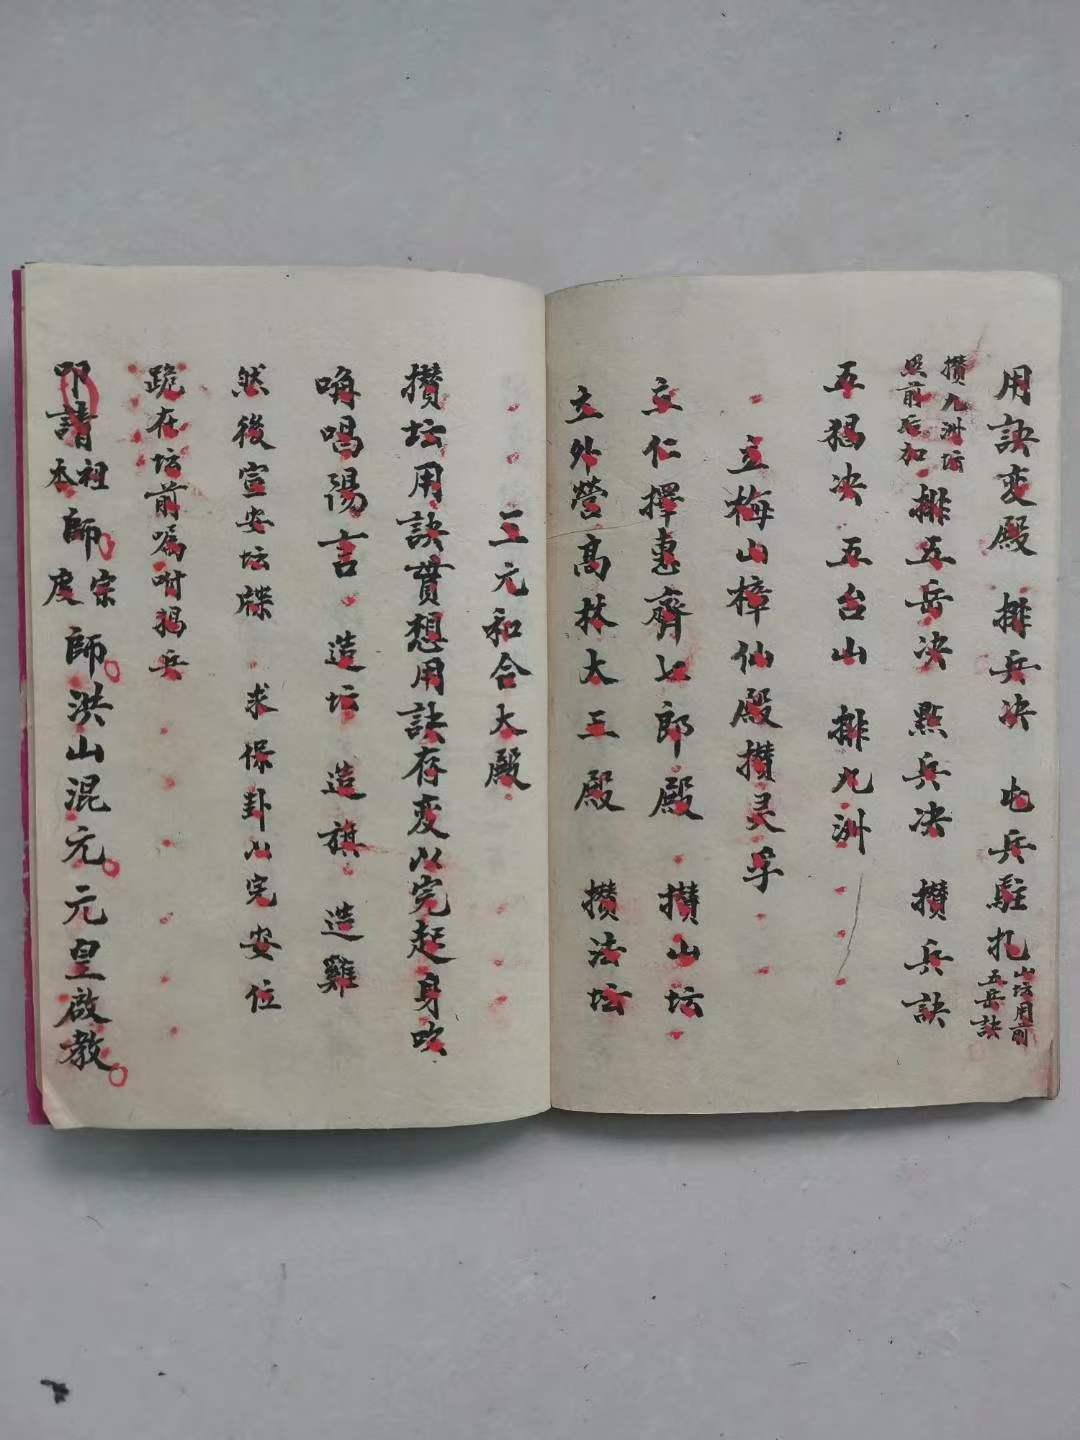 用訣变殿 排兵决 屯兵駐扎 山坛用前
五兵訣
攢九洲坛
照前后加 排五岳决 點兵决 攢兵訣
五猖决 五台山 排九洲
立梅山樟仙殿攢灵孚
立仁擇惠齊七郎殿 攢山坛
立外營高林大王殿 攢法坛
三元和合大殿
攢坛用訣貫想用訣存変以完起身吹
喚唱陽言 造坛 造旗 造雞
然後宣安坛牒 求保卦以完安位
跪在坛前嘱咐猖兵
叩請祖本師宗度師洪山混元元皇啟教